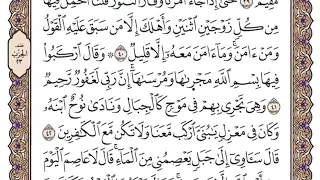 مُّقِيمٌ ٣٩ حَتَّىٰٓ إِذَا جَآءَ أَمْرُنَا وَفَارَ ٱلتَّنُّورُ قُلْنَا ٱحْمِلْ فِيهَا
مِن كُلٍّ زَوْجَيْنِ ٱثْنَيْنِ وَأَهْلَكَ إِلَّا مَن سَبَقَ عَلَيْهِ ٱلْقَوْلُ
وَمَنْ ءَامَنَ ۚ وَمَآ ءَامَنَ مَعَهُۥٓ إِلَّا قَلِيلٌ ٤٠ ۞ وَقَالَ ٱرْكَبُوا۟
فِيهَا بِسْمِ ٱللَّهِ مَجْر۪ىٰهَا وَمُرْسَىٰهَآ ۚ إِنَّ رَبِّى لَغَفُورٌ رَّحِيمٌ
٤١ وَهِىَ تَجْرِى بِهِمْ فِى مَوْجٍ كَٱلْجِبَالِ وَنَادَىٰ نُوحٌ ٱبْنَهُۥ
وَكَانَ فِى مَعْزِلٍ يَـٰبُنَىَّ ٱرْكَب مَّعَنَا وَلَا تَكُن مَّعَ ٱلْكَـٰفِرِينَ ٤٢
قَالَ سَـَٔاوِىٓ إِلَىٰ جَبَلٍ يَعْصِمُنِى مِنَ ٱلْمَآءِ ۚ قَالَ لَا عَاصِمَ ٱلْيَوْمَ